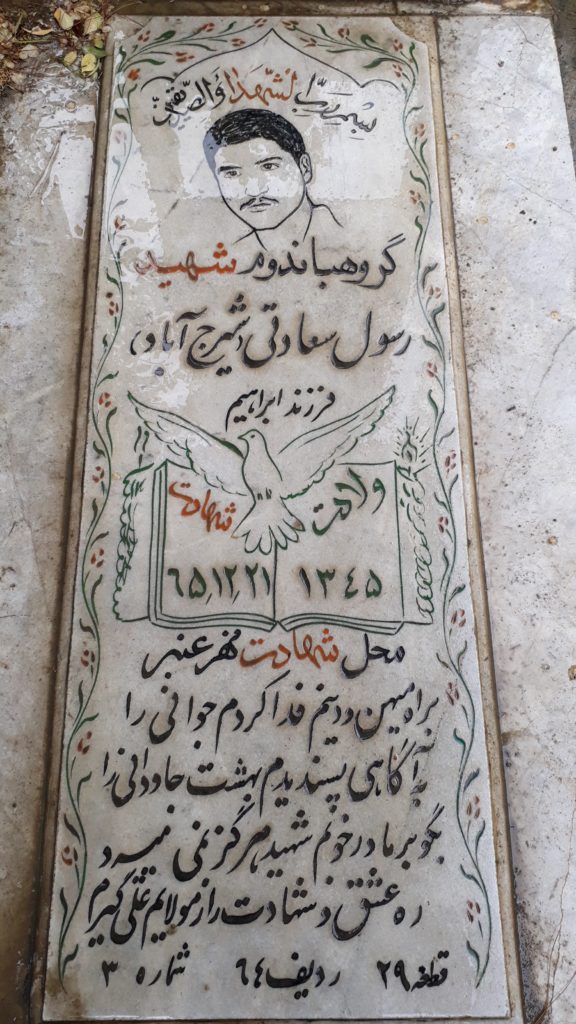 بسم رب الشهداء والصدیقین
گروهباندوم شهید
رسول سعادتی (شیرج آباد)
فرزند ابراهیم
ولادت شهادت
۱۳۴۵ ۶۵,۱۲,۲۱
محل شهادت نهر عنبر
براه میهن و دینم فدا کردم جوانی را
به آگاهی پسندیدم بهشت جاودانی را
بگو بر مادر خوبم شهید هرگز نمی میرد
ره عشق و شهادت را ز مولایم علی گیرم
قطعه ۲۹ ردیف ۶۴ شماره ۳